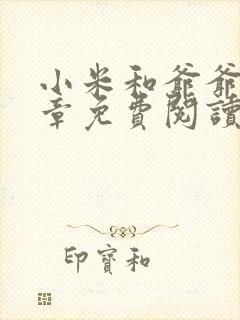 小米和爺爺
章免費閱讀
印寶和